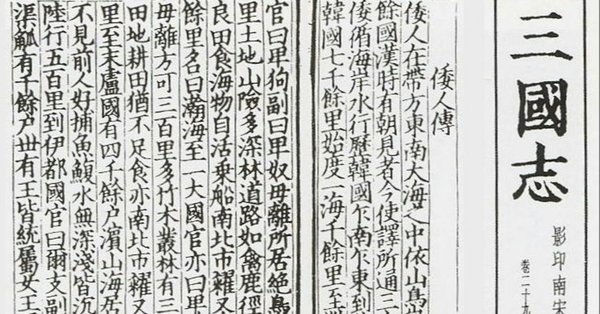 三國志
影印南宋
卷二十九
倭人傳
倭人在帶方東南大海之中依山島
餘國漢時有朝見者今使譯所通三
倭循海岸水行歷韓國乍南乍東到
韓國七千餘里始度一海千餘里至
官曰卑狗副曰卑奴毋離所居絶島
里土地山險多深林道路如禽鹿徑
良田食海物自活乗船南北市糴又
餘里名曰瀚海至一大國官亦曰卑
毋離方可三百里多竹木叢林有三
田地耕田猶不足食亦南北市糴又
里至末盧國有四千餘户濱山海居
不見前人好捕魚鰒水無深淺皆沉
陸行五百里到伊都國官曰爾支副
渠觚有千餘户丗有王皆統屬女王